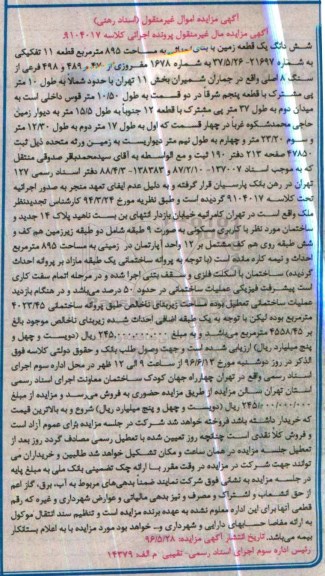 آگهی مزایده اموال غیرمنقول (اسناد رهنی)
آگهی مزایده مال غیرمنقول پرونده اجرائی کلاسه ۹۱۰۴۰۱۷
شش دانگ یک قطعه زمین با بنای به مساحت ۸۹۵ مترمربع قطعه ۱۱ تفکیکی
به شماره ۲۱۶۹۷-۳۷/۵/۲۶ به شماره ۱۶۷۸ مفروزی از و ۴۸۹ و ۴۹۸ فرعی از
سنگ ۸ اصلی واقع در جماران شمیران بخش ۱۱ تهران با حدود شمالاً به طول ۱۰ متر
پی مشترک با قطعه پنجم شرقاً در دو قسمت به طول ۱۰/۵۰ متر قوس داخلی است به
میدان دوم به طول ۳۷ متر پی مشترک با قطعه ۱۲ جنوباً به طول ۱۵/۵ متر به دیوار زمین
حاجی محمدشکوه غرباً در چهار قسمت که اول به طول ۱۷ متر دوم به طول ۱۲/۳۰ متر
و سوم ۲۳/۲۰ متر و چهارم به طول نیم متر دیواریست به زمین ورثه متحده ذیل ثبت
۴۷۸۵۰ صفحه ۲۱۳ دفتر ۱۹۰ ثبت و مع الواسطه به آقای سیدمحمدباقر صدوقی منتقل
که به موجب اسناد ۱۳۷۰۰۷-۸۷/۲/۱۰ و ۱۳۸۳۸۲-۸۸/۴/۳ دفتر اسناد رسمی ۱۲۷
تهران در رهن بانک پارسیان قرار گرفته و به دلیل عدم ایفای تعهد منجر به صدور اجرائیه
تحت کلاسه ۹۱۰۴۰۱۷ گردیده است و طبق نظریه مورخ ۹۴/۳/۲۴ کارشناس تجدیدنظر
ملک واقع است در تهران کامرانیه خیابان بازدار انتهای بن بست ناهید پلاک ۱۴ جدید و
ساختمان مورد نظر با کاربری مسکونی به صورت ۹ طبقه شامل دو طبقه زیرزمین هم کف و
شش طبقه روی هم کف مشتمل بر ۱۲ واحد آپارتمان در زمینی به مساحت ۸۹۵ مترمربع
احداث و نیمه کاره مانده است (با توجه به پروانه ساختمانی یک طبقه مازاد بر پروانه احداث
گردیده) ساختمان با اسکلت فلزی و سقف بتنی اجرا شده و در مرحله اتمام سفت کاری
است پیشرفت فیزیکی عملیات ساختمانی در حدود ۵۰ درصد می‌باشد و در هنگام بازدید
عملیات ساختمانی تعطیل بوده مساحت زیربنای ناخالص طبق پروانه ساختمانی ۴۰۲۳/۴۵
مترمربع بوده لیکن با توجه به یک طبقه اضافی احداث شده زیربنای ناخالص موجود بالغ
بر ۴۵۵۸/۴۵ مترمربع می‌باشد و به مبلغ ۲۴۵/۰۰۰/۰۰۰/۰۰۰ ریال (دویست و چهل و
پنج میلیارد ریال) ارزیابی شده است و جهت وصول طلب بانک و حقوق دولتی کلاسه فوق
الذکر در روز دوشنبه مورخ ۹۶/۶/۱۳ از ساعت ۹ الی ۱۲ ظهر در محل اداره سوم اجرای
اسناد رسمی واقع در تهران چهارراه جهان کودک ساختمان معاونت اجرای اسناد رسمی
استان تهران سالن مزایده از طریق مزایده حضوری به فروش می‌رسد و مزایده از مبلغ
۲۴۵/۰۰۰/۰۰۰/۰۰۰ ریال (دویست و چهل و پنج میلیارد ریال) شروع و به بالاترین قیمت
که خریدار داشته باشد فروخته خواهد شد شرکت در جلسه مزایده برای عموم آزاد است
و فروش کلاً نقدی است چنانچه روز تعیین شده با تعطیل رسمی مصادف گردد روز بعد از
تعطیل جلسه مزایده در همان ساعت و مکان تشکیل خواهد شد طالبین و خریداران می
توانند جهت شرکت در مزایده در وقت مقرر با ارائه چک تضمینی بانک ملی به مبلغ پایه
در جلسه مزایده به نشانی فوق شرکت نمایند ضمناً بدهی‌های مربوط به آب، برق، گاز اعم
از حق انشعاب و اشتراک و مصرف و نیز بدهی مالیاتی و عوارض شهرداری و غیره که رقم
قطعی آنها برای این اداره معلوم نشده به عهده برنده مزایده است و تنظیم سند انتقال موکول
به ارائه مفاصا حسابهای دارایی و شهرداری و... خواهد بود مورد مزایده بنا به اعلام بستانکار
بیمه می‌باشد. تاریخ انتشار آگهی مزایده: ۹۶/۵/۲۸
رئیس اداره سوم اجرای اسناد رسمی - نقیبی م الف: ۱۴۳۷۹